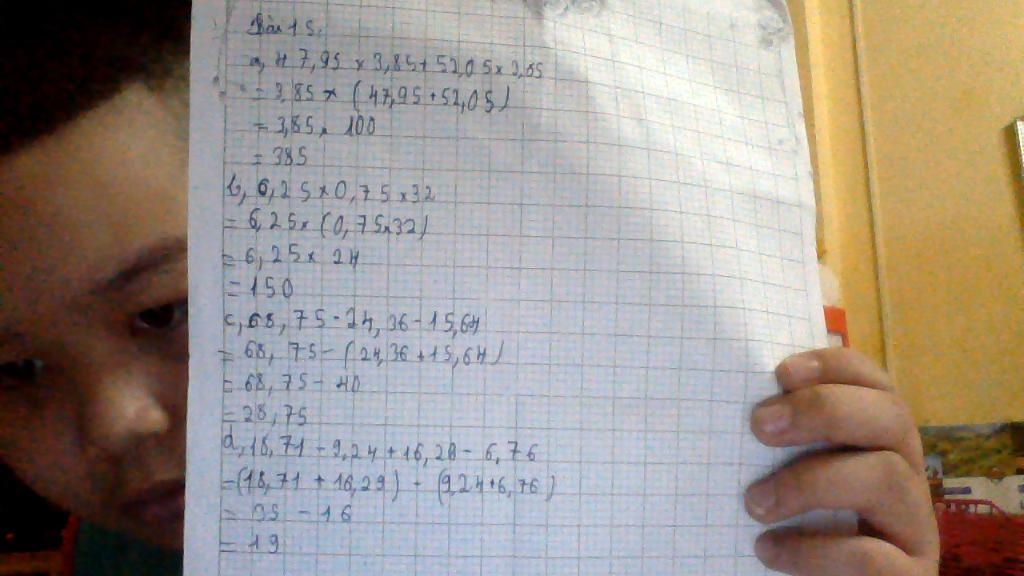 Bài 15.
a, 47,95 × 3,85 + 52,05 × 3,85
= 3,85 × (47,95 + 52,05)
= 3,85 × 100
= 385
b, 6,25 × 0,75 × 32
= 6,25 × (0,75 × 32)
= 6,25 × 24
= 150
c, 68,75 - 24,36 - 15,64
= 68,75 - (24,36 + 15,64)
= 68,75 - 40
= 28,75
d, 18,71 - 9,24 + 16,29 - 6,76
= (18,71 + 16,29) - (9,24 + 6,76)
= 35 - 16
= 19